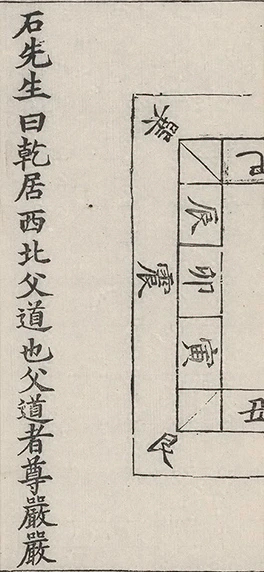 丑
辰
卯
寅
巽
震
艮
石先生曰乾居西北父道也父道者尊嚴嚴